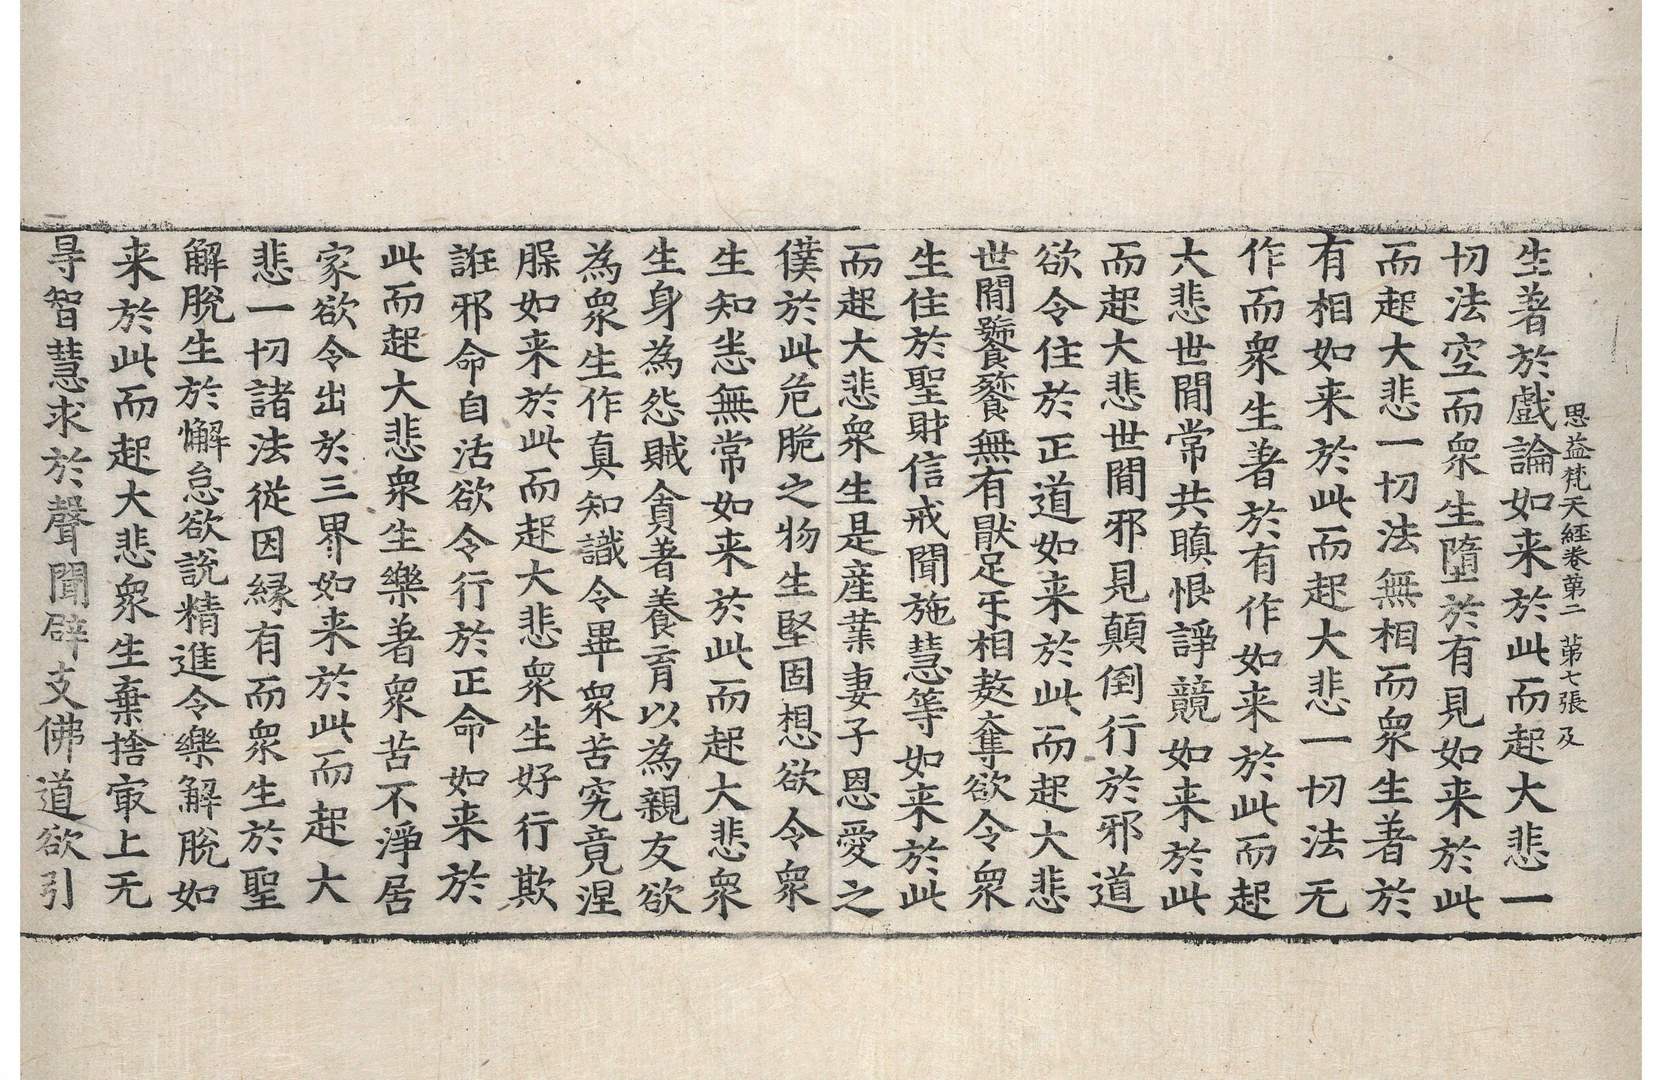 思益梵天經卷第二　第七張　及
生著於戲論如来於此而起大悲一
切法空而衆生墮於有見如来於此
而起大悲一切法無相而衆生著於
有相如来於此而起大悲一切法无
作而衆生著於有作如来於此而起
大悲世閒常共瞋恨諍競如来於此
而起大悲世閒邪見顛倒行於邪道
欲令住於正道如来於此而起大悲
世閒饕餮無有猒足乐相敚奪欲令衆
生住於聖財信戒聞施慧等如来於此
而起大悲衆生是産業妻子恩愛之
僕於此危脆之物生堅固想欲令衆
生知悉無常如来於此而起大悲衆
生身為怨賊貪著養育以為親友欲
為衆生作真知識令畢衆苦究竟涅
如来於此而起大悲衆生好行欺
誑邪命自活欲令行於正命如来於
此而起大悲衆生樂著衆苦不淨居
家欲令出於三界如来於此而起大
悲一切諸法從因縁有而衆生於聖
解脫生於懈怠欲說精進令樂解脫如
来於此而起大悲衆生棄捨㝡上无
㝵智慧求於聲聞辟支佛道欲引